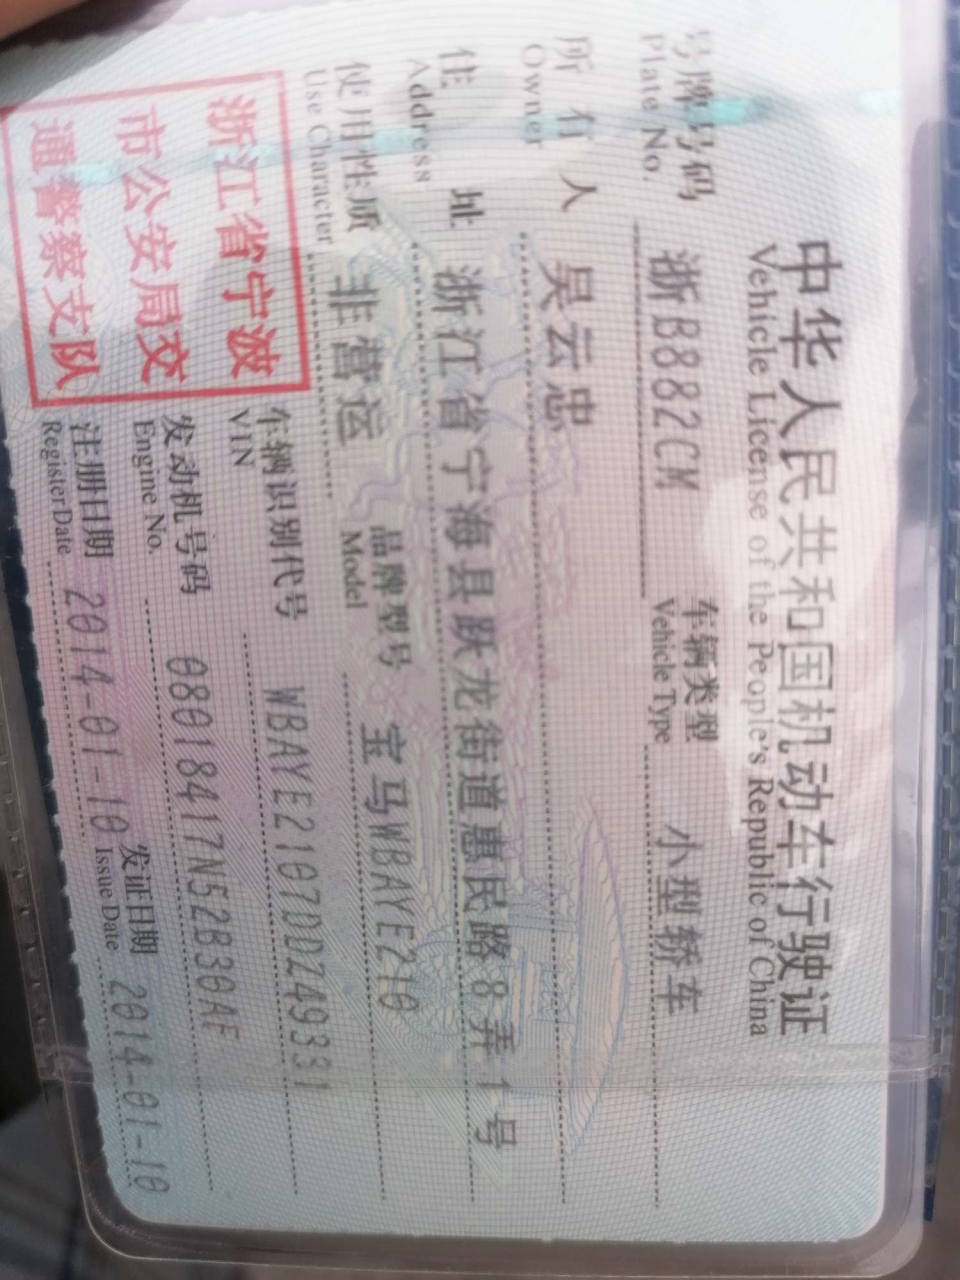 中华人民共和国机动车行驶证
Vehicle License of the People's Republic of China
号牌号码 浙B882CM 车辆类型 小型轿车
Plate No. Vehicle Type
所有人 吴云忠
Owner
住址 浙江省宁海县跃龙街道惠民路8弄1号
Address
使用性质 非营运 品牌型号 宝马WBAYE210
Use Character Model
浙江省宁波
市公安局交
通警察支队
车辆识别代号 WBAYE2107DDZ49331
VIN
发动机号码 08018417N52B30AF
Engine No.
注册日期 2014-01-10 发证日期 2014-01-10
Register Date Issue Date